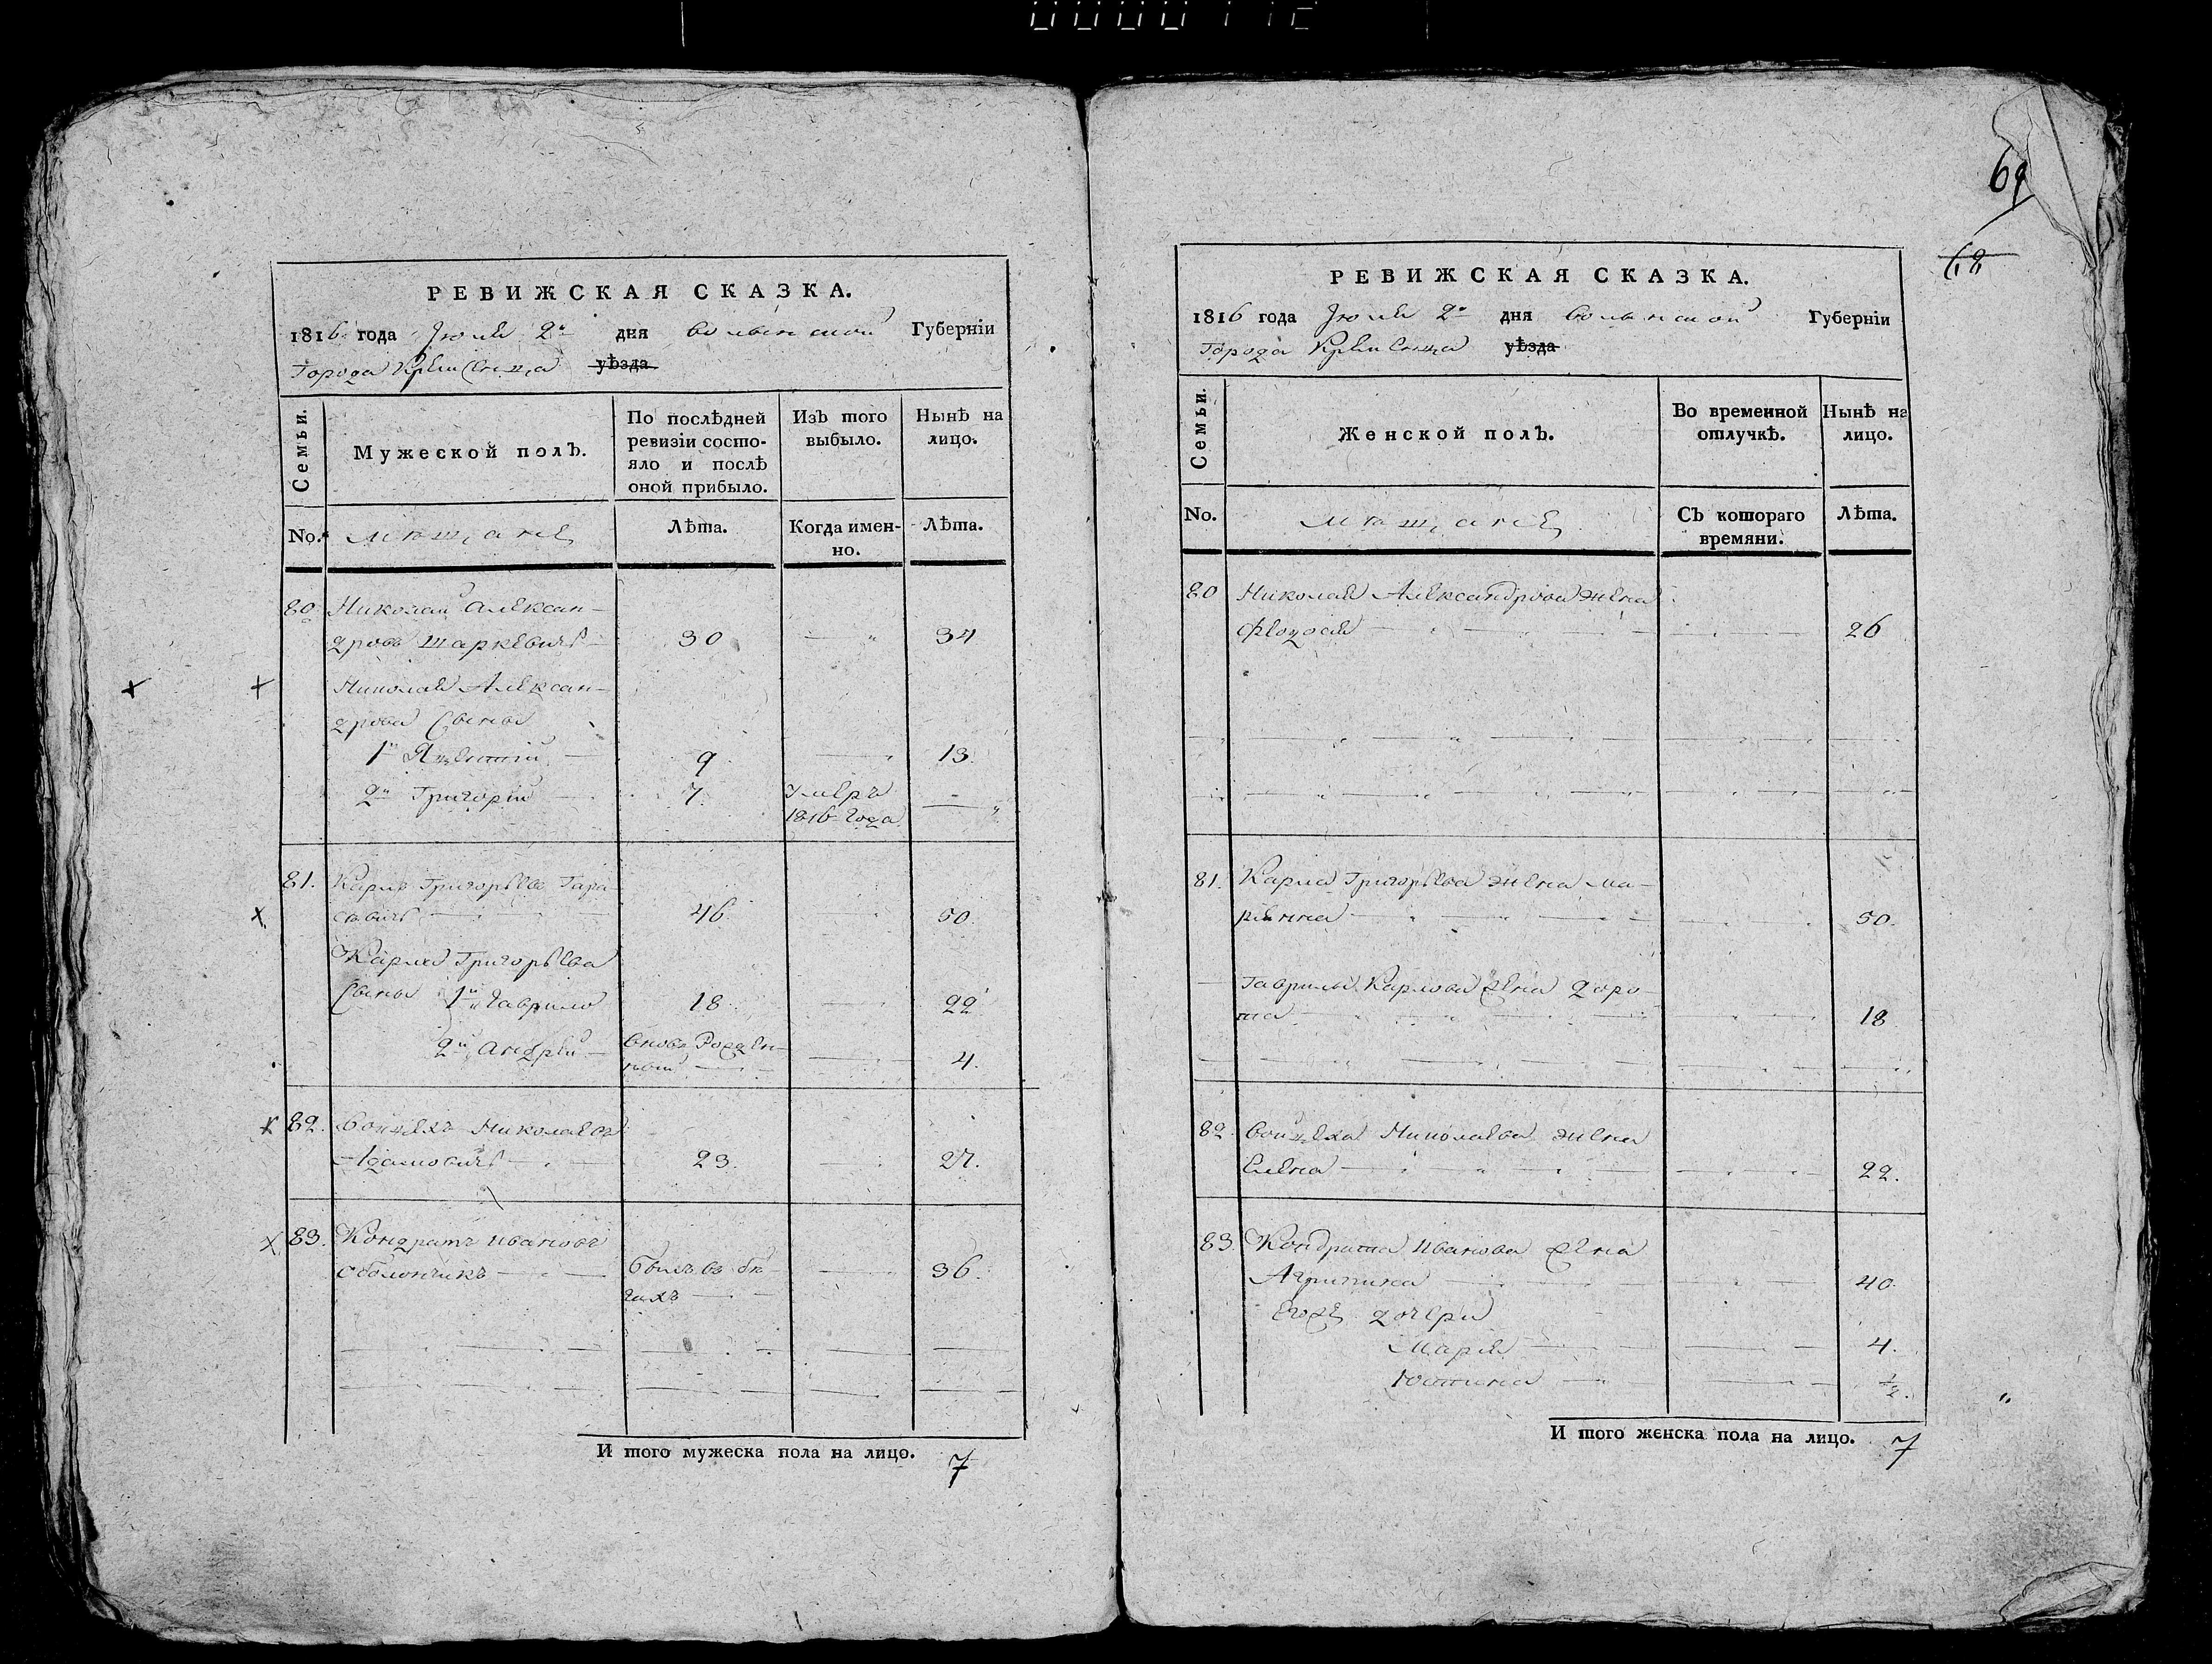 РЕВИЖСКАЯ СКАЗКА.
1816 года Июля 2го дня Волынской Губерніи
Города Кременца уѣзда
Семьи.
Мужеской полъ.
По послѣдней ревизіи состояло и послѣ оной прибыло.
Изъ того выбыло.
Нынѣ на лицо.
No.
мѣщане
Лѣта.
Когда именно.
Лѣта.
80 Николай Алексан-
дровъ Шаркевичъ 30 34
Николая Алексан-
дрова Сыновья
1й 9 13
2й Григорій 7. Умеръ
1816 года
81. Карлъ Григорьевъ Гара-
севичъ 46 50.
Карла Григорьева
Сыны 1й Гаврило 18 22
2й Андрей Вновь Рожден-
ной 4.
82. Войцехъ Николаевъ
Адамовичъ 23. 27.
83. Кондратъ Ивановъ
Оболончикъ Былъ въ бѣ- 36.
гахъ
И того мужеска пола на лицо. 7
69
68
РЕВИЖСКАЯ СКАЗКА.
1816 года Июля 2го дня Волынской Губерніи
Города Кременца уѣзда
Семьи.
Женской полъ.
Во временной отлучкѣ.
Нынѣ на лицо.
No.
мѣщане
Съ котораго времяни.
Лѣта.
80 Николая Александрова жена
Феодосія 26
81. Карла Григорьева жена Ма-
ріянна 50.
Гаврилы Карлова жена Доро-
та 18
82. Войцеха Николаева жена
Елена 22.
83. Кондрата Иванова жена
Агрипина 40.
Егоже дочери
Марія 4.
Юстина ½.
И того женска пола на лицо. 7